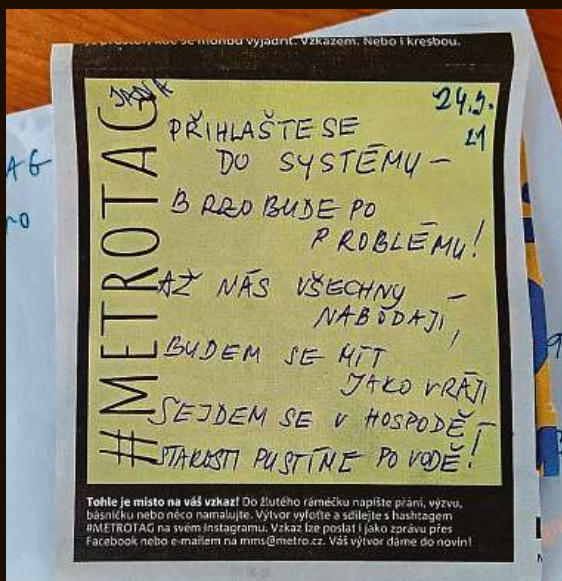 prostor, kde se mohou vyjádřit. Vzkazem. Nebo i kresbou.
#METROTAG
JANA
24.3.
21
PŘIHLAŠTE SE
DO SYSTÉMU –
BRZO BUDE PO
PROBLÉMU!
AŽ NÁS VŠECHNY –
NABODAJI,
BUDEM SE MÍT
JAKO V RÁJI
SEJDEM SE V HOSPODĚ –
STAROSTI PUSTÍME PO VODĚ!
Tohle je místo na váš vzkaz! Do žlutého rámečku napište přání, výzvu,
básničku nebo něco namalujte. Výtvor vyfoťte a sdílejte s hashtagem
#METROTAG na svém Instagramu. Vzkaz lze poslat i jako zprávu přes
Facebook nebo e-mailem na mms@metro.cz. Váš výtvor dáme do novin!